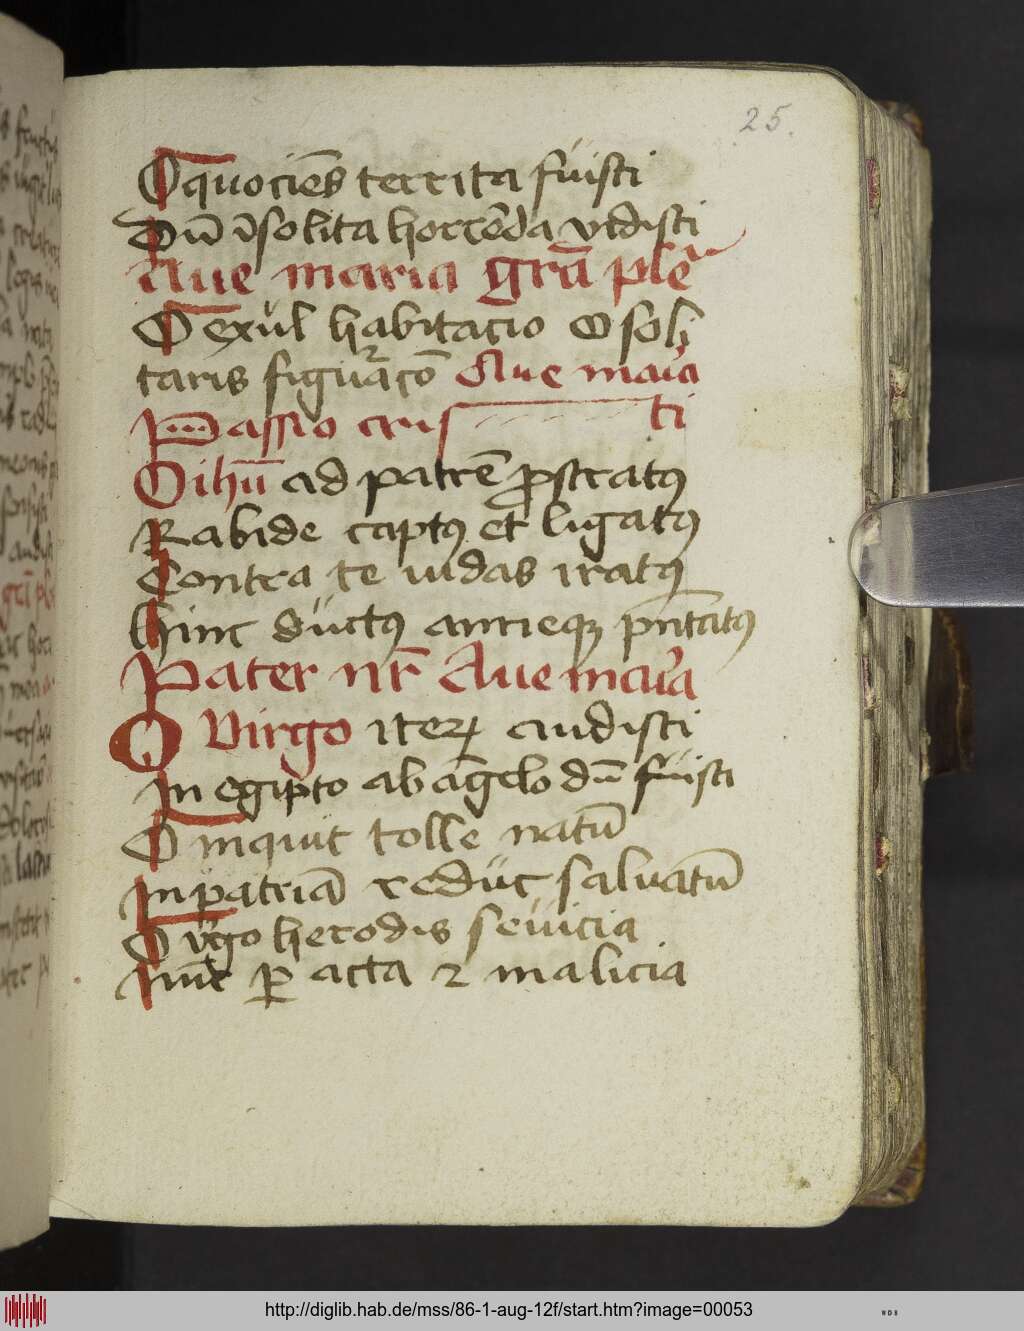 25.
O quociēs territa fuisti
Dū īsolita horrēda vidisti
Aue maria grā plē
O exul habitacio O soli
taris figuracō Aue maria
Passio cris ti
O ihū ad patrē prostratꝰ
Rabide captꝰ et ligatꝰ
Contra te iudas iratꝰ
Hinc ductꝰ
Pater nr̄ Aue maria
O Virgo iteꝝ audisti
In egipto ab āgelo dū fuisti
O inquit tolle natū
In patriā reduc saluatū
O v̄go herodis seuicia
ꝑ acta ⁊ malicia
http://diglib.hab.de/mss/86-1-aug-12f/start.htm?image=00053